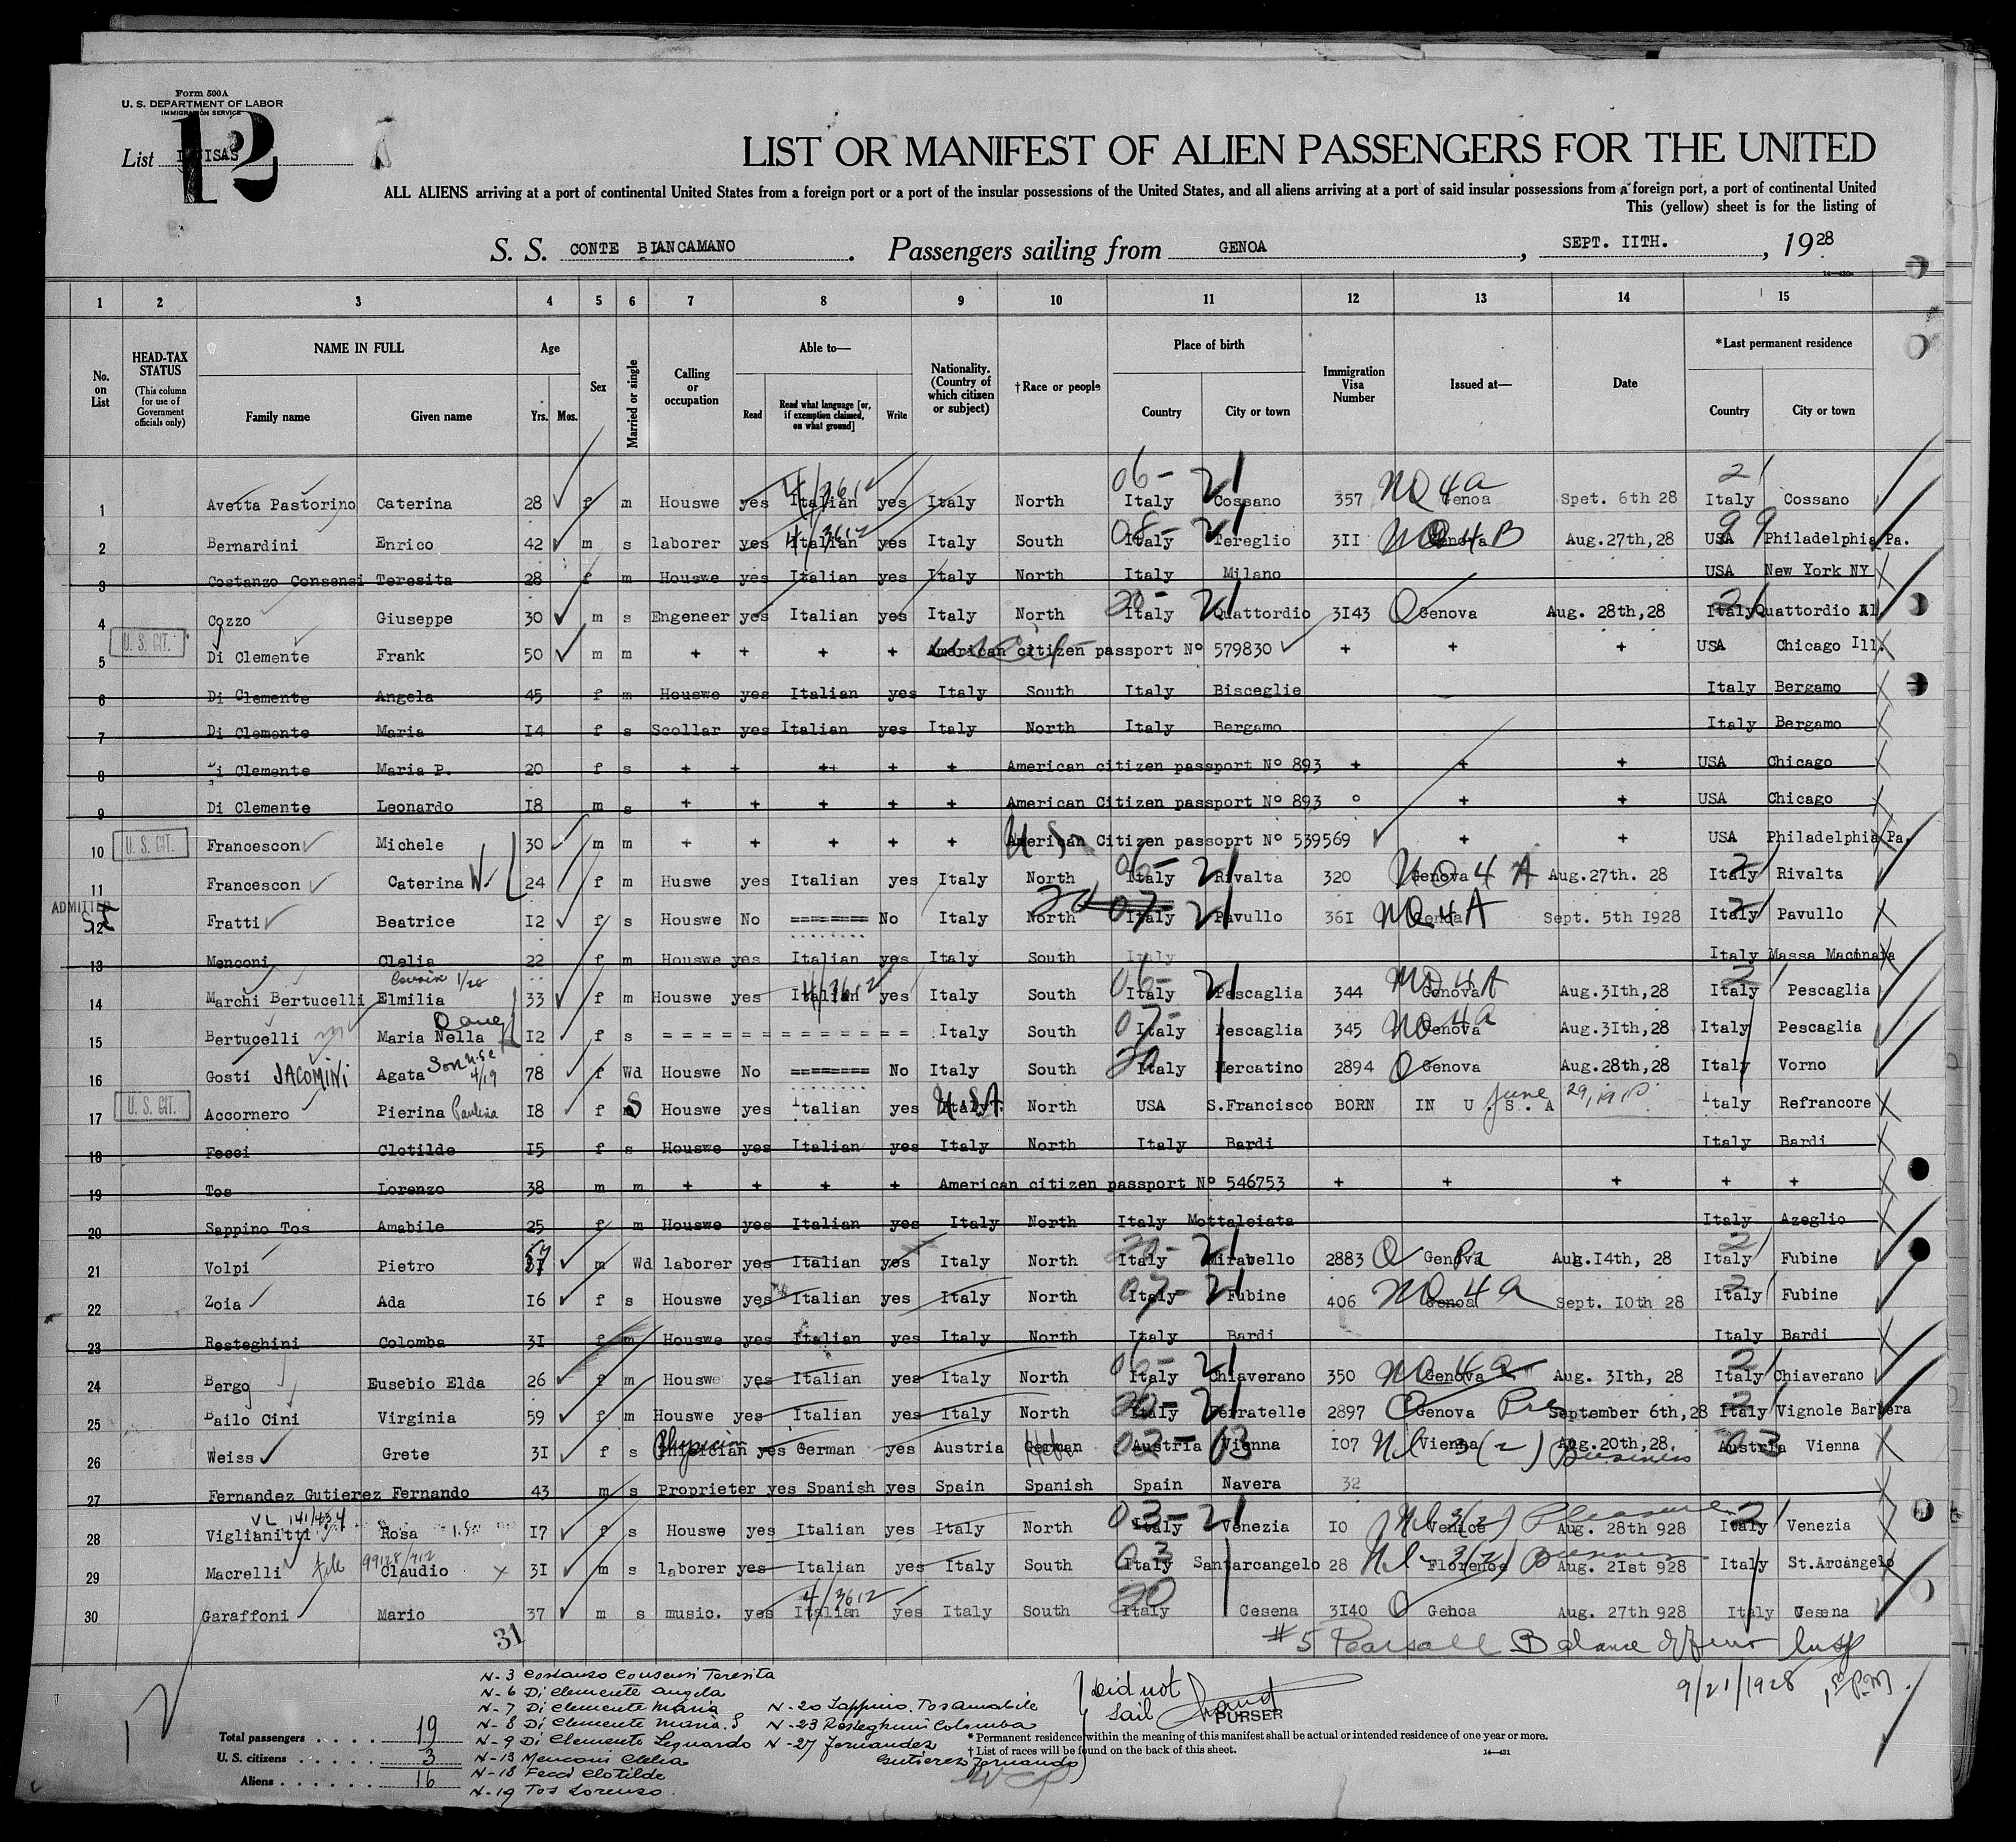 Form 500A
U. S. DEPARTMENT OF LABOR
IMMIGRATION SERVICE
List
12
LIST OR MANIFEST OF ALIEN PASSENGERS FOR THE UNITED
ALL ALIENS arriving at a port of continental United States from a foreign port or a port of the insular possessions of the United States, and all aliens arriving at a port of said insular possessions from a foreign port, a port of continental United
This (yellow) sheet is for the listing of
S. S. CONTE BIANCAMANO . Passengers sailing from GENOA , SEPT. IITH. , 1928
1 2 3 4 5 6 7 8 9 10 11 12 13 14 15
No. on List HEAD-TAX STATUS (This column for use of Government officials only) NAME IN FULL Family name Given name Age Yrs. Mos. Sex Married or single Calling or occupation Able to— Read Read what language [or, if exemption claimed, on what ground] Write Nationality. (Country of which citizen or subject) † Race or people Place of birth Country City or town Immigration Visa Number Issued at— Date *Last permanent residence Country City or town
1 Avetta Pastorino Caterina 28 f m Houswe yes Italian 4/3612 yes Italy North 06- 21 Italy Cossano 357 NQ 4a Genoa Spet. 6th 28 21 Italy Cossano
2 Bernardini Enrico 42 m s laborer yes Italian 4/3612 yes Italy South 08- 21 Italy Tereglio 3II NQ 4B Genova Aug.27th,28 99 USA Philadelphia Pa.
3 Costanzo Consensi Teresita 28 f m Houswe yes Italian yes Italy North Italy Milano USA New York NY
4 Cozzo Giuseppe 30 m s Engeneer yes Italian yes Italy North 20- 21 Italy Quattordio 3I43 Q Genova Aug. 28th,28 21 Italy Quattordio Al
5 U. S. CIT. Di Clemente Frank 50 m m + + + + American citizen passport Nº 579830 + + + USA Chicago Ill.
6 Di Clemente Angela 45 f m Houswe yes Italian yes Italy South Italy Bisceglie Italy Bergamo
7 Di Clemente Maria I4 f s Scollar yes Italian yes Italy North Italy Bergamo Italy Bergamo
8 Di Clemente Maria P. 20 f s + + ++ + + American citizen passport Nº 893 + + + USA Chicago
9 Di Clemente Leonardo I8 m s + + + + + American Citizen passport Nº 893 º + + USA Chicago
10 U. S. CIT. Francescon Michele 30 m m + + + + + American Citizen passoprt Nº 539569 + + USA Philadelphia Pa.
11 Francescon Caterina W. 24 f m Huswe yes Italian yes Italy North 06- 21 Italy Rivalta 320 NQ 4 A Genova Aug.27th. 28 21 Italy Rivalta
ADMITTED
12 Fratti Beatrice I2 f s Houswe No ======== No Italy North 20 07- 21 Italy Pavullo 36I NQ 4A Genoa Sept. 5th I928 21 Italy Pavullo
13 Menconi Clelia 22 f m Houswe yes Italian yes Italy South Italy Italy Massa Macinaia
14 Marchi Bertucelli Elmilia Cousin 1/28 33 f m Houswe yes Italian 4/3612 yes Italy South 06- 21 Italy Pescaglia 344 NQ 4A Genova Aug.3Ith,28 21 Italy Pescaglia
15 Bertucelli Maria Nella I2 f s = = = = = = = = = = = = = Italy South 07- Italy Pescaglia 345 NQ 4a Genova Aug.3Ith,28 Italy Pescaglia
16 Gosti JACOMINI Agata Son 4/19 78 f Wd Houswe No ======== No Italy South 20 Italy Mercatino 2894 Q Genova Aug.28th,28 Italy Vorno
17 U. S. CIT. Accornero Pierina Paulina I8 f S Houswe yes Italian yes U.S.A. Italy North USA S.Francisco BORN IN U .S. A June 29, 1910 Italy Refrancore
18 Fecci Clotilde I5 f s Houswe yes Italian yes Italy North Italy Bardi Italy Bardi
19 Tos Lorenzo 38 m m + + + + American citizen passport Nº 546753 + + + + +
20 Sappino Tos Amabile 25 f m Houswe yes Italian yes Italy North Italy Mottalciata Italy Azeglio
21 Volpi Pietro 57 m Wd laborer yes Italian yes Italy North 20- 21 Italy Mirabello 2883 Q Genova Aug.I4th, 28 2 Italy Fubine
22 Zoia Ada I6 f s Houswe yes Italian yes Italy North 07- 21 Italy Fubine 406 NQ 4 a Genoa Sept. I0th 28 21 Italy Fubine
23 Resteghini Colomba 3I f m Houswe yes Italian yes Italy North Italy Bardi Italy Bardi
24 Bergo Eusebio Elda 26 f m Houswe yes Italian yes Italy North 06- 21 Italy Chiaverano 350 NQ 4a Genova Aug. 3Ith, 28 21 Italy Chiaverano
25 Bailo Cini Virginia 59 f m Houswe yes Italian yes Italy North 20- 21 Italy Ferratelle 2897 Q Genova September 6th,28 21 Italy Vignole Barbera
26 Weiss Grete 3I f s Physician yes German yes Austria German 03- 03 Austria Vienna I07 Vienna 3(2) Aug.20th,28. Business 03 Austria Vienna
27 Fernandez Gutierez Fernando 43 m s Proprieter yes Spanish yes Spain Spanish Spain Navera 32
28 Viglianitti Rosa I7 f s Houswe yes Italian yes Italy North 03- 21 Italy Venezia I0 Venice 3(2) Pleasure Aug. 28th 928 21 Italy Venezia
29 Macrelli 99128/912 Claudio x 3I m s laborer yes Italian yes Italy South 03 Italy Santarcangelo 28 Florence 3(2) Business Aug. 2Ist 928 Italy St.Arcangelo
30 Garaffoni Mario 37 m s music. yes Italian 4/3612 yes Italy South 20 Italy Cesena 3I40 Q Genoa Aug. 27th 928 Italy Cesena
31
#5 Pearsall Balance Insp
9/21/1928
N-3 Costanzo Consensi Teresita
N-6 Di Clemente Angela
N-7 Di Clemente Maria N-20 Sappino. Tos Amabile
N-8 Di Clemente Maria. P N-23 Resteghini Colomba
N-9 Di Clemente Leonardo N-27 Fernandez
N-13 Menconi Clelia Gutierez Fernando
N-18 Fecci Clotilde
N-19 Tos Lorenzo.
Did not
Sail
PURSER
Total passengers . . . . 19
U. S. citizens . . . . . 3
Aliens . . . . . . 16
* Permanent residence within the meaning of this manifest shall be actual or intended residence of one year or more.
† List of races will be found on the back of this sheet.
14—431